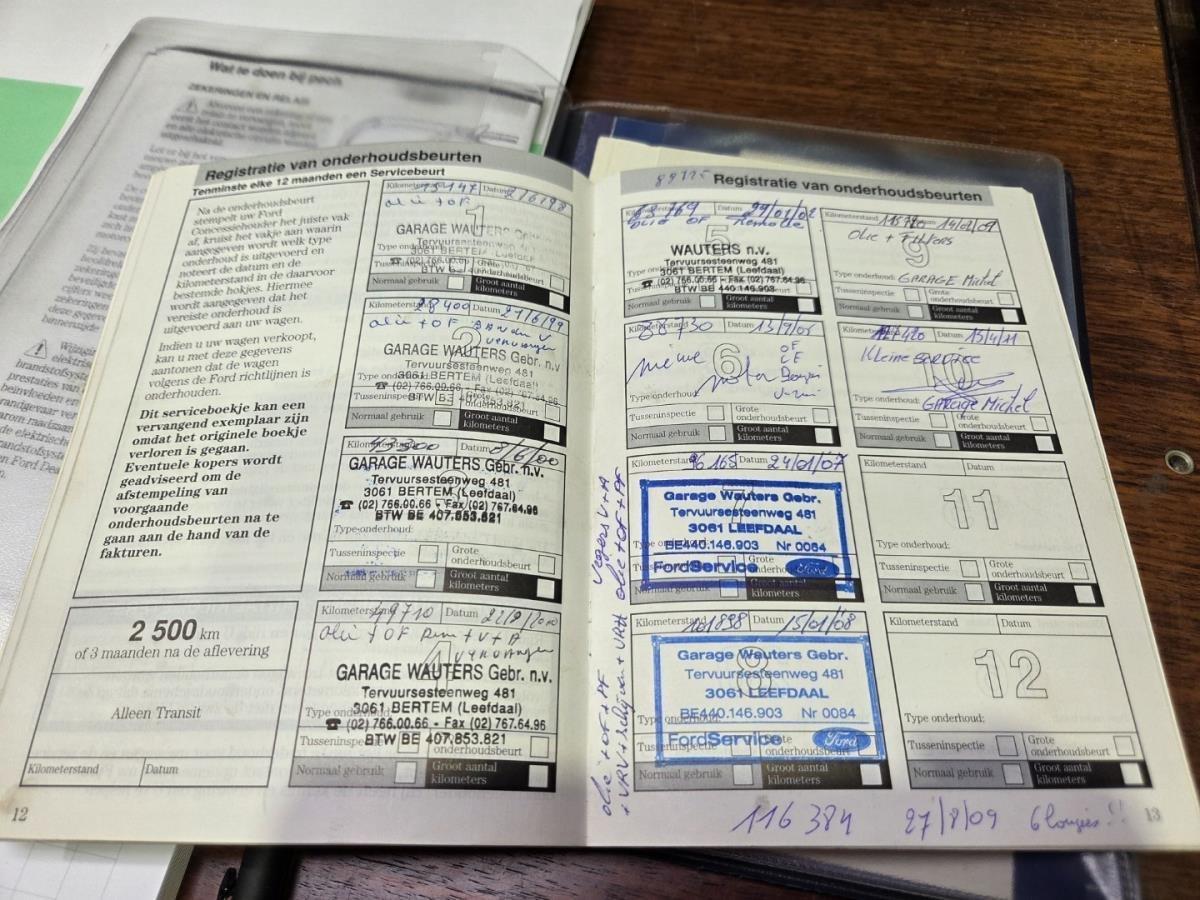 Wat te doen bij pech
ZEKERINGEN EN RELAIS
Registratie van onderhoudsbeurten
Tenminste elke 12 maanden een Servicebeurt
Na de onderhoudsbeurt
stempelt uw Ford
Concessiehouder het juiste vak
af, kruist het vakje aan waarin
aangegeven wordt welk type
onderhoud is uitgevoerd en
noteert de datum en de
kilometerstand in de daarvoor
bestemde hokjes. Hiermee
wordt aangegeven dat het
vereiste onderhoud is
uitgevoerd aan uw wagen.
Indien u uw wagen verkoopt,
kan u met deze gegevens
aantonen dat de wagen
volgens de Ford richtlijnen is
onderhouden.
Dit serviceboekje kan een
vervangend exemplaar zijn
omdat het originele boekje
verloren is gegaan.
Eventuele kopers wordt
geadviseerd om de
afstempeling van
voorgaande
onderhoudsbeurten na te
gaan aan de hand van de
fakturen.
2 500 km
of 3 maanden na de aflevering
Alleen Transit
Kilometerstand Datum
12
Kilometerstand 15147 Datum 2/6/98
olie + OF
1
GARAGE WAUTERS Gebr.
Tervuursesteenweg 481
3061 BERTEM (Leefdaal)
☎ (02) 766.00.66 - Fax (02) 767.64.96
Tusseninspectie Grote onderhoudsbeurt
Normaal gebruik Groot aantal kilometers
Kilometerstand 28400 Datum 21/6/99
olie + OF Banden
vervangen
2
GARAGE WAUTERS Gebr. n.v.
Tervuursesteenweg 481
3061 BERTEM (Leefdaal)
☎ (02) 766.00.66 - Fax (02) 767.64.96
Tusseninspectie BTW BE 407.853.821
Normaal gebruik Groot aantal kilometers
Kilometerstand 43900 Datum 8/6/00
GARAGE WAUTERS Gebr. n.v.
Tervuursesteenweg 481
3061 BERTEM (Leefdaal)
☎ (02) 766.00.66 - Fax (02) 767.64.96
BTW BE 407.853.821
Type onderhoud:
Tusseninspectie Grote onderhoudsbeurt
Normaal gebruik Groot aantal kilometers
Kilometerstand 49710 Datum 22/9/2000
olie + OF Rem + V + A
vervangen
4
GARAGE WAUTERS Gebr. n.v.
Tervuursesteenweg 481
Type onderhoud: 3061 BERTEM (Leefdaal)
☎ (02) 766.00.66 - Fax (02) 767.64.96
Tusseninspectie BTW BE 407.853.821 onderhoudsbeurt
Normaal gebruik Groot aantal kilometers
Registratie van onderhoudsbeurten
Datum 29/01/02
olie OF
5
WAUTERS n.v.
Tervuursesteenweg 481
3061 BERTEM (Leefdaal)
☎ (02) 766.00.66 - Fax (02) 767.64.96
BTW BE 440.146.903
Normaal gebruik Groot aantal kilometers
88730 Datum 13/9/05
6
OF
LF
Type onderhoud:
Tusseninspectie Grote onderhoudsbeurt
Normaal gebruik Groot aantal kilometers
Kilometerstand 96165 Datum 24/01/07
7
Garage Wauters Gebr.
Tervuursesteenweg 481
3061 LEEFDAAL
BE440.146.903 Nr 0084
FordService Ford
Normaal gebruik Groot aantal kilometers
Kilometerstand 101898 Datum 15/01/08
8
Garage Wauters Gebr.
Tervuursesteenweg 481
3061 LEEFDAAL
BE440.146.903 Nr 0084
FordService Ford
Tusseninspectie Grote onderhoudsbeurt
Normaal gebruik Groot aantal kilometers
Kilometerstand Datum
Olie + Filters
9
Type onderhoud: GARAGE Michel
Tusseninspectie Grote onderhoudsbeurt
Normaal gebruik Groot aantal kilometers
Kilometerstand Datum 15/4/11
Kleine
10
Type onderhoud: GARAGE Michel
Tusseninspectie Grote onderhoudsbeurt
Normaal gebruik Groot aantal kilometers
Kilometerstand Datum
11
Type onderhoud:
Tusseninspectie Grote onderhoudsbeurt
Normaal gebruik Groot aantal kilometers
Kilometerstand Datum
12
Type onderhoud:
Tusseninspectie Grote onderhoudsbeurt
Normaal gebruik Groot aantal kilometers
olie + OF + PF
116 384 27/8/09 6 bougies!!
13